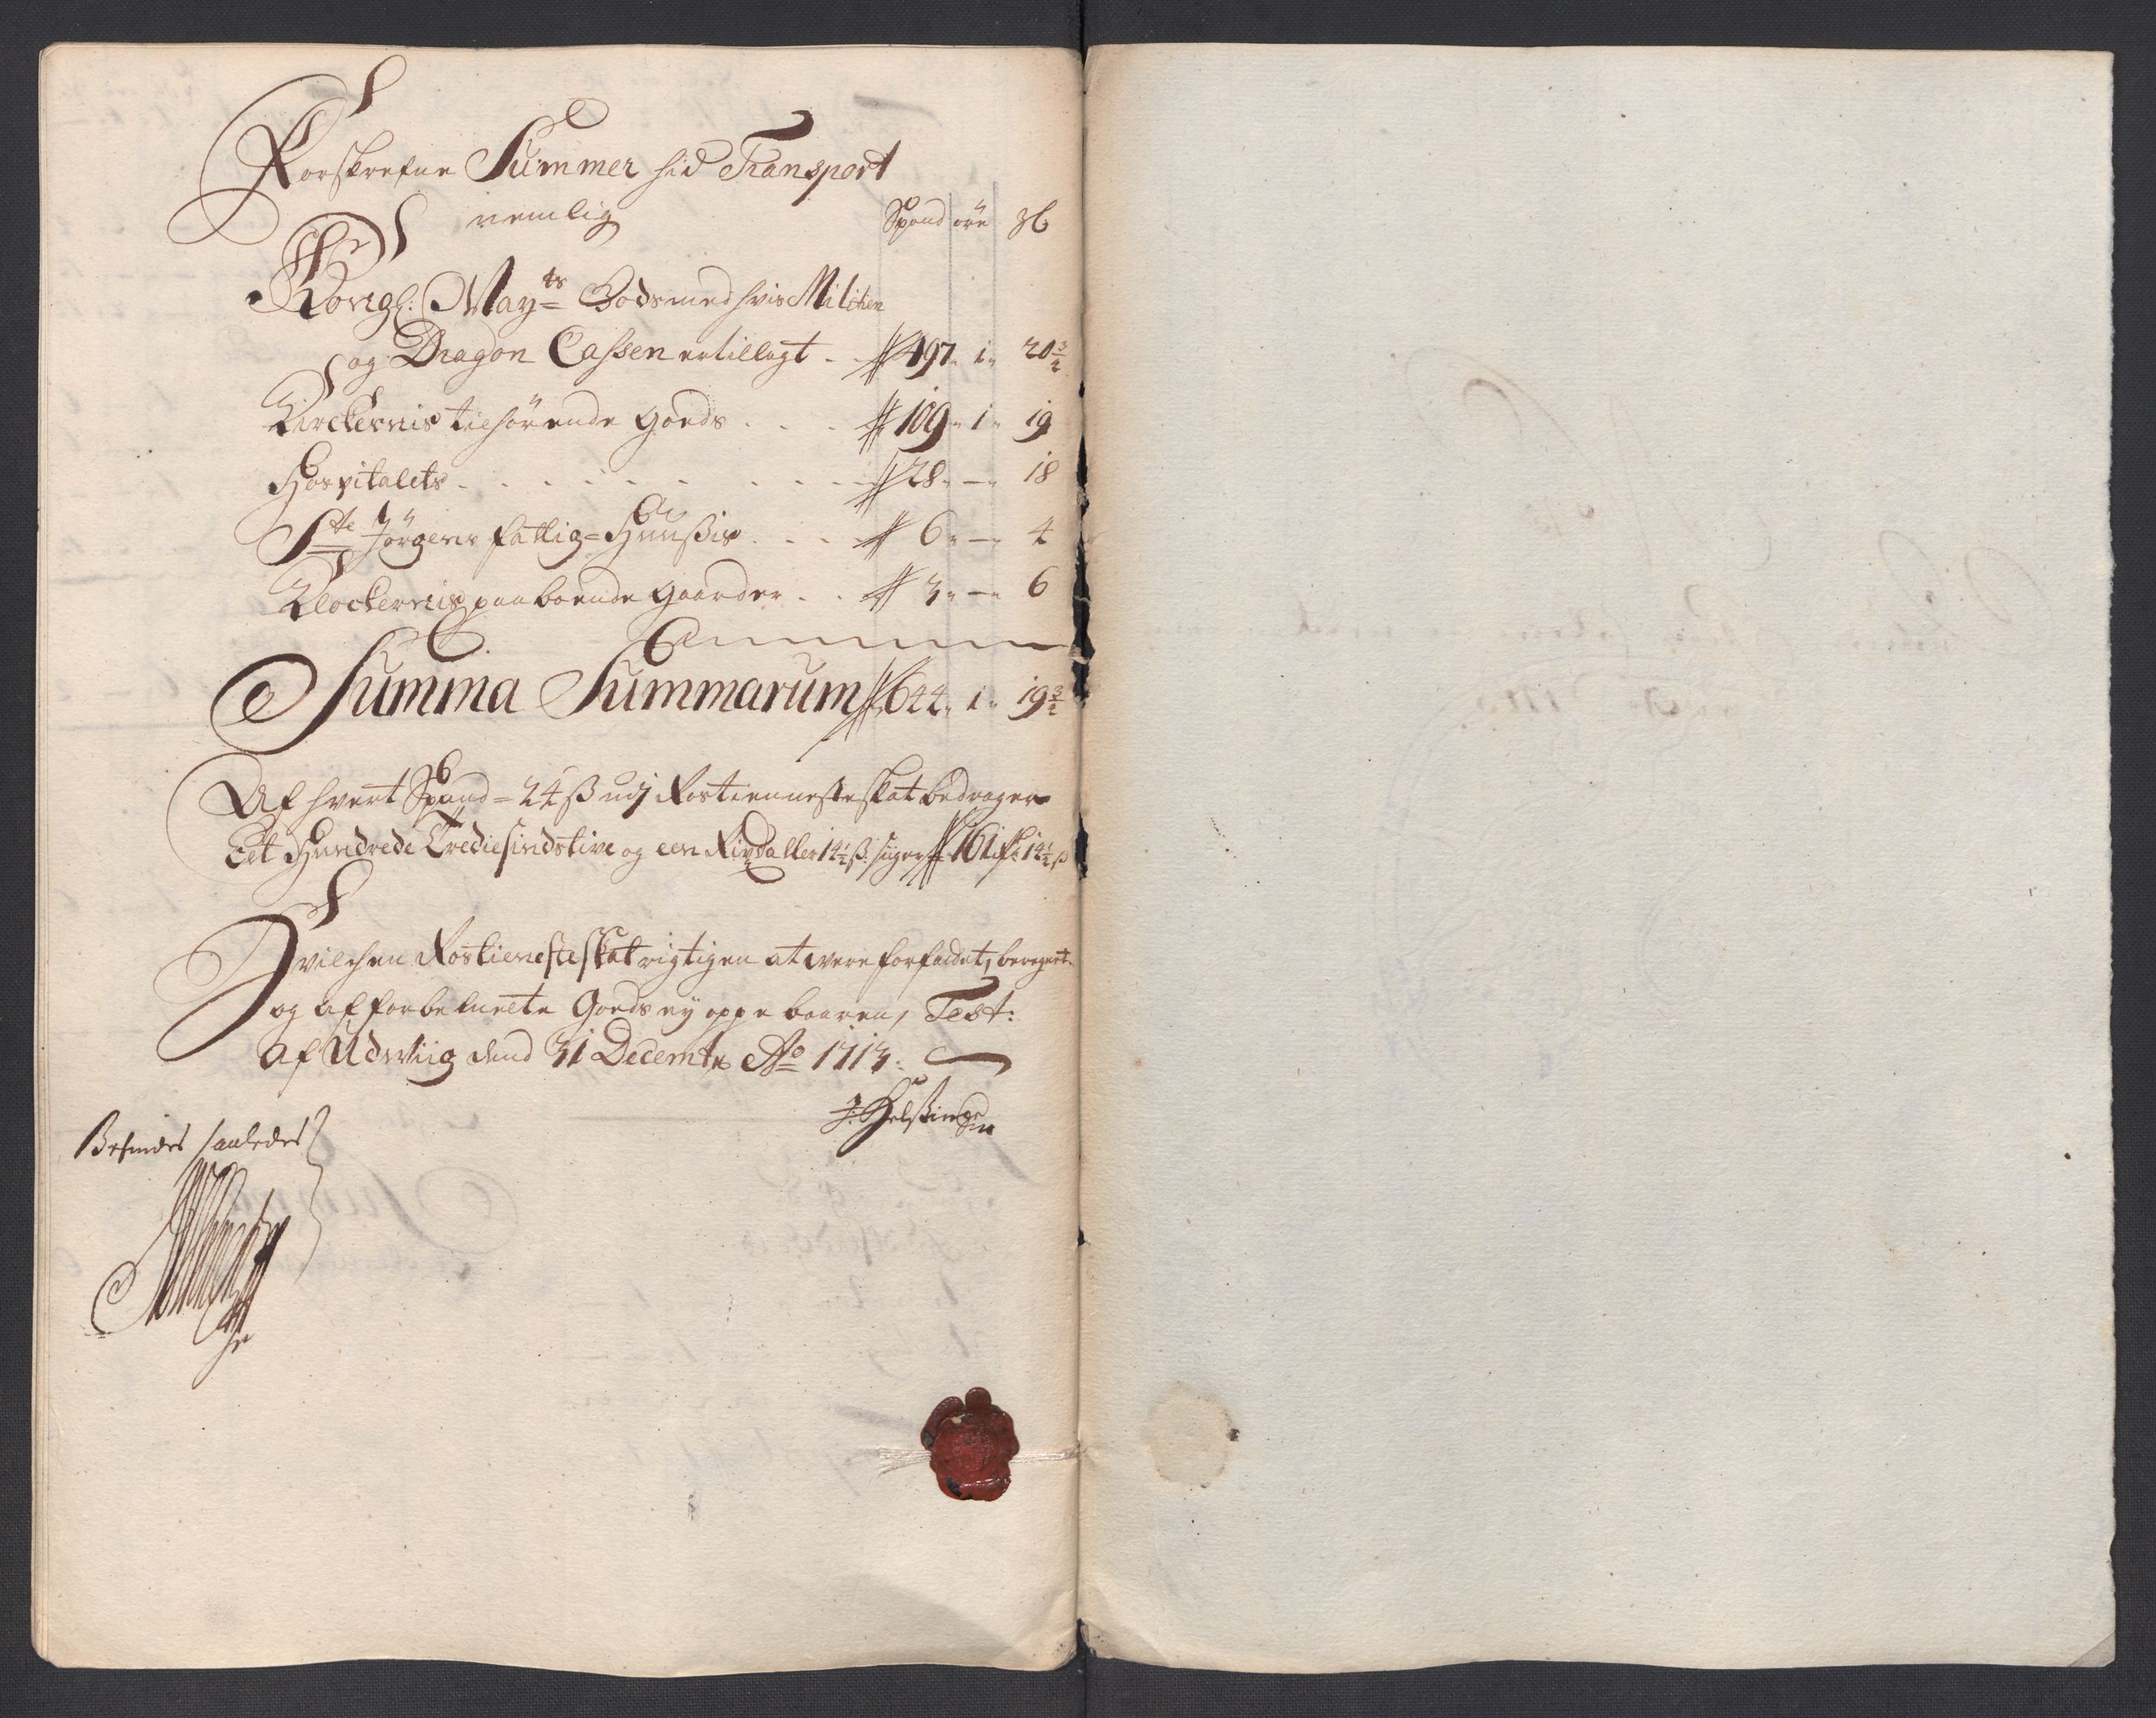 Forskrefne Summer hid Transport
nemlig
Spand øre ℳ
Kongl: May:ts Gods med hvis Militien
og Dragon Cassen er tillegt . . 497„ 1„ 20 3/2
Kirckernis tilhørende Goeds . . . 109„ 1„ 19
Hospitalets . . . . . . . . 28„ —„ 18
Ste Jørgens fattig=Huußis . . . 6„ —„ 4
Klockernis paaboende Gaarder . . 3„ —„ 6
Summa Summarum 644„ 1„ 19 3/2
Af hvert Spand = 24 ß udj Rostienneste skat bedrager
Eet Hundrede Trediesindstive og een Rixdaller 14½ ß: siger 161 Rd 14½ ß
Hvilchen Rostieneste skat rigtigen at were forfattet, beregnet
og af forbemelte Goeds ey oppebaaren, Test:
Af Udwiig dend 31 Decembr Ao 1713.
J: Helßingr
Befindes saaledes